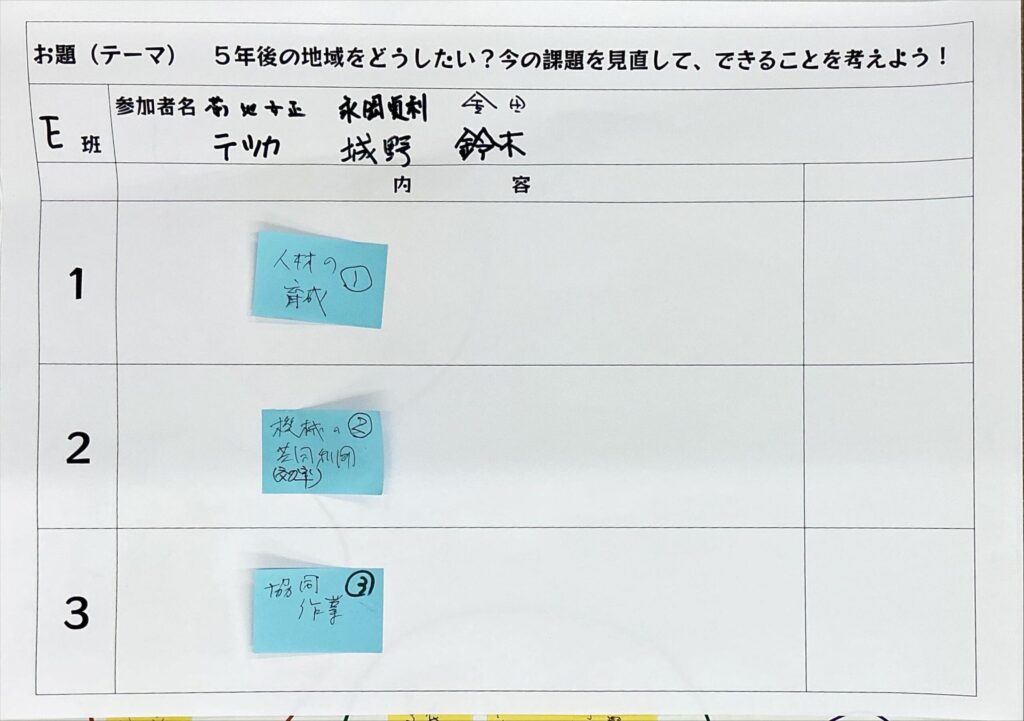 お題（テーマ）　５年後の地域をどうしたい？今の課題を見直して、できることを考えよう！
E 班
参加者名 菊地 永岡貞利 金田
テツカ 城野 鈴木
内　容
1
人材の ①
育成
2
機械の ②
共同利用
(効率)
3
協同 ③
作業